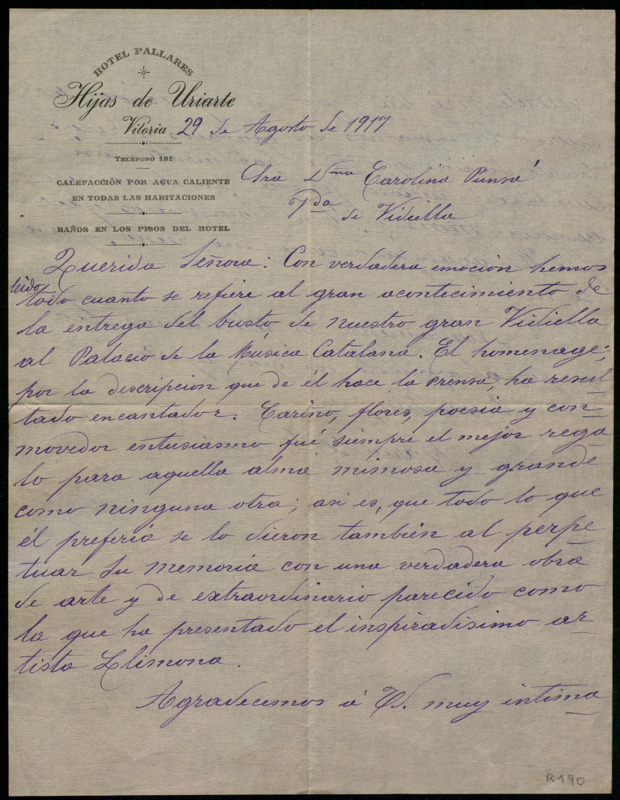 HOTEL PALLARES
Hijas de Uriarte
Vitoria 29 de Agosto de 1917
TELÉFONO 181
CALEFACCIÓN POR AGUA CALIENTE
EN TODAS LAS HABITACIONES
BAÑOS EN LOS PISOS DEL HOTEL
Sra Dña Carolina Punsá
Vda de Vidiella
Querida Señora: Con verdadera emoción hemos
leido
todo cuanto se refiere al gran acontecimiento de
la entrega del busto de nuestro gran Vidiella
al Palacio de la Música Catalana. El homenage,
por la descripcion que de él hace la Prensa, ha resul-
tado encantador. Cariño, flores, poesia y con-
movedor entusiasmo fué siempre el mejor rega
lo para aquella alma mimosa y grande
como ninguna otra; asi es, que todo lo que
él preferia se lo dieron también al perpe
tuar su memoria con una verdadera obra
de arte y de extraordinario parecido como
la que ha presentado el inspiradísimo ar-
tista Llimona.
Agradecemos á Vd. muy intima
R190